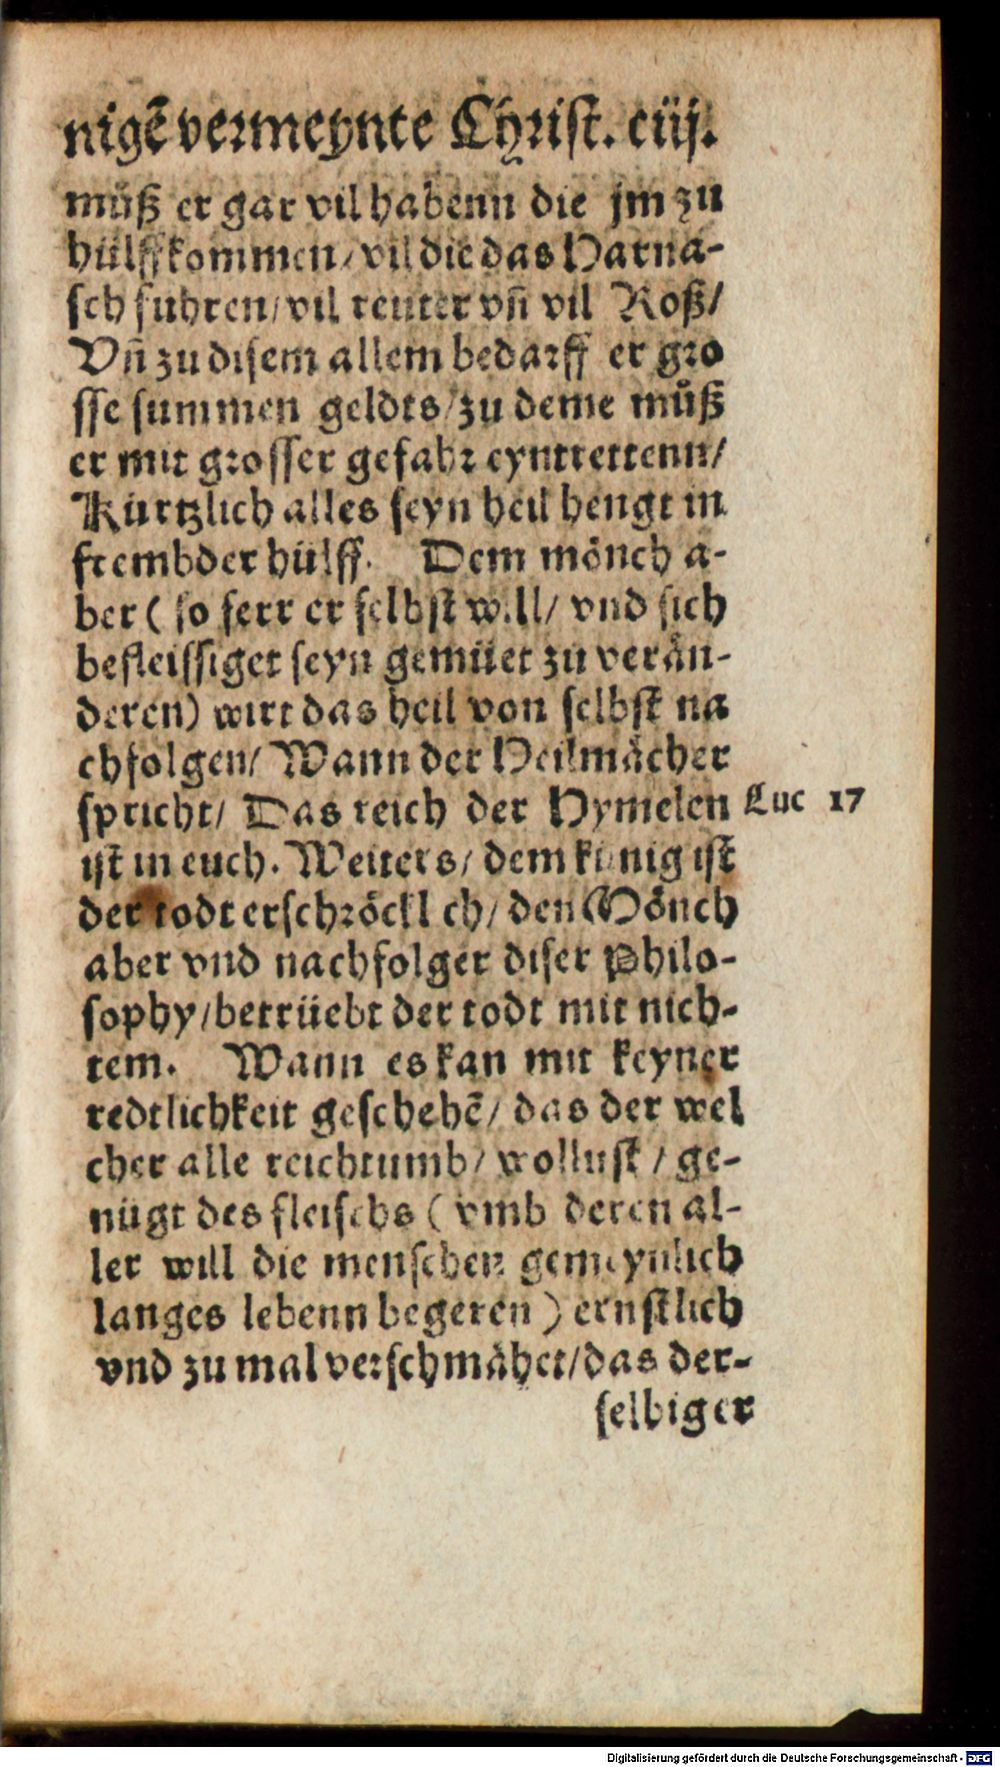 nigẽ vermeynte Christ. ciij.
můß er gar vil habenn die jm zu
hülff kommen/ vil die das Harna-
sch fuhren/ vil reuter vñ vil Roß/
Vñ zu disem allem bedarff er gro
sse summen geldts/ zu deme můß
er mit grosser gefahr eyntrettenn/
Kürtzlich alles seyn heil hengt in
frembder hülff. Dem mönch a-
ber ( so ferr er selbst will/ vnd sich
befleissiget seyn gemüet zu verån-
deren) wirt das heil von selbst na
chfolgen/ Wann der Heilmåcher
spricht/ Das reich der Hymelen
Luc 17
ist in euch. Weiters/ dem künig ist
der todt erschröcklich/ den Mönch
aber vnd nachfolger diser Philo-
sophy/ betrüebt der todt mit nich-
tem. Wann es kan mit keyner
redtlichkeit geschehẽ/ das der wel
cher alle reichtumb/ wollust / ge-
nügt des fleischs ( vmb deren al-
ler will die menschen gemeynlich
langes lebenn begeren ) ernstlich
vnd zu mal verschmåhet/ das der-
selbiger
Digitalisierung gefördert durch die Deutsche Forschungsgemeinschaft - DFG